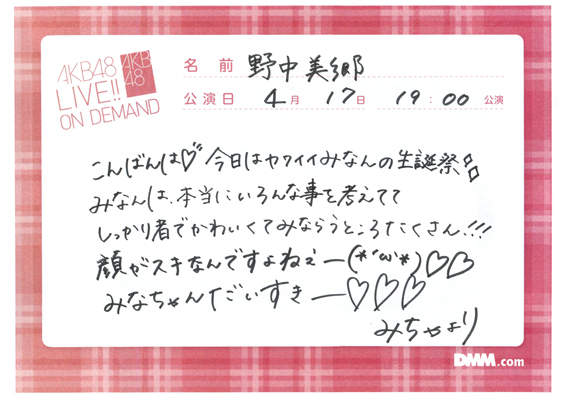 AKB48
LIVE!!
ON DEMAND
AKB
48
名前 野中美郷
公演日 4月 17日 19:00 公演
こんばんは♡ 今日はカワイイみなんの生誕祭
みなんは、本当にいろんな事を考えてて
しっかり者でかわいくてみならうところたくさん!!!
顔がスキなんですよねぇー(*´ω`*)♡♡
みなちゃんだいすきー♡♡♡
みちゃより
DMM.com